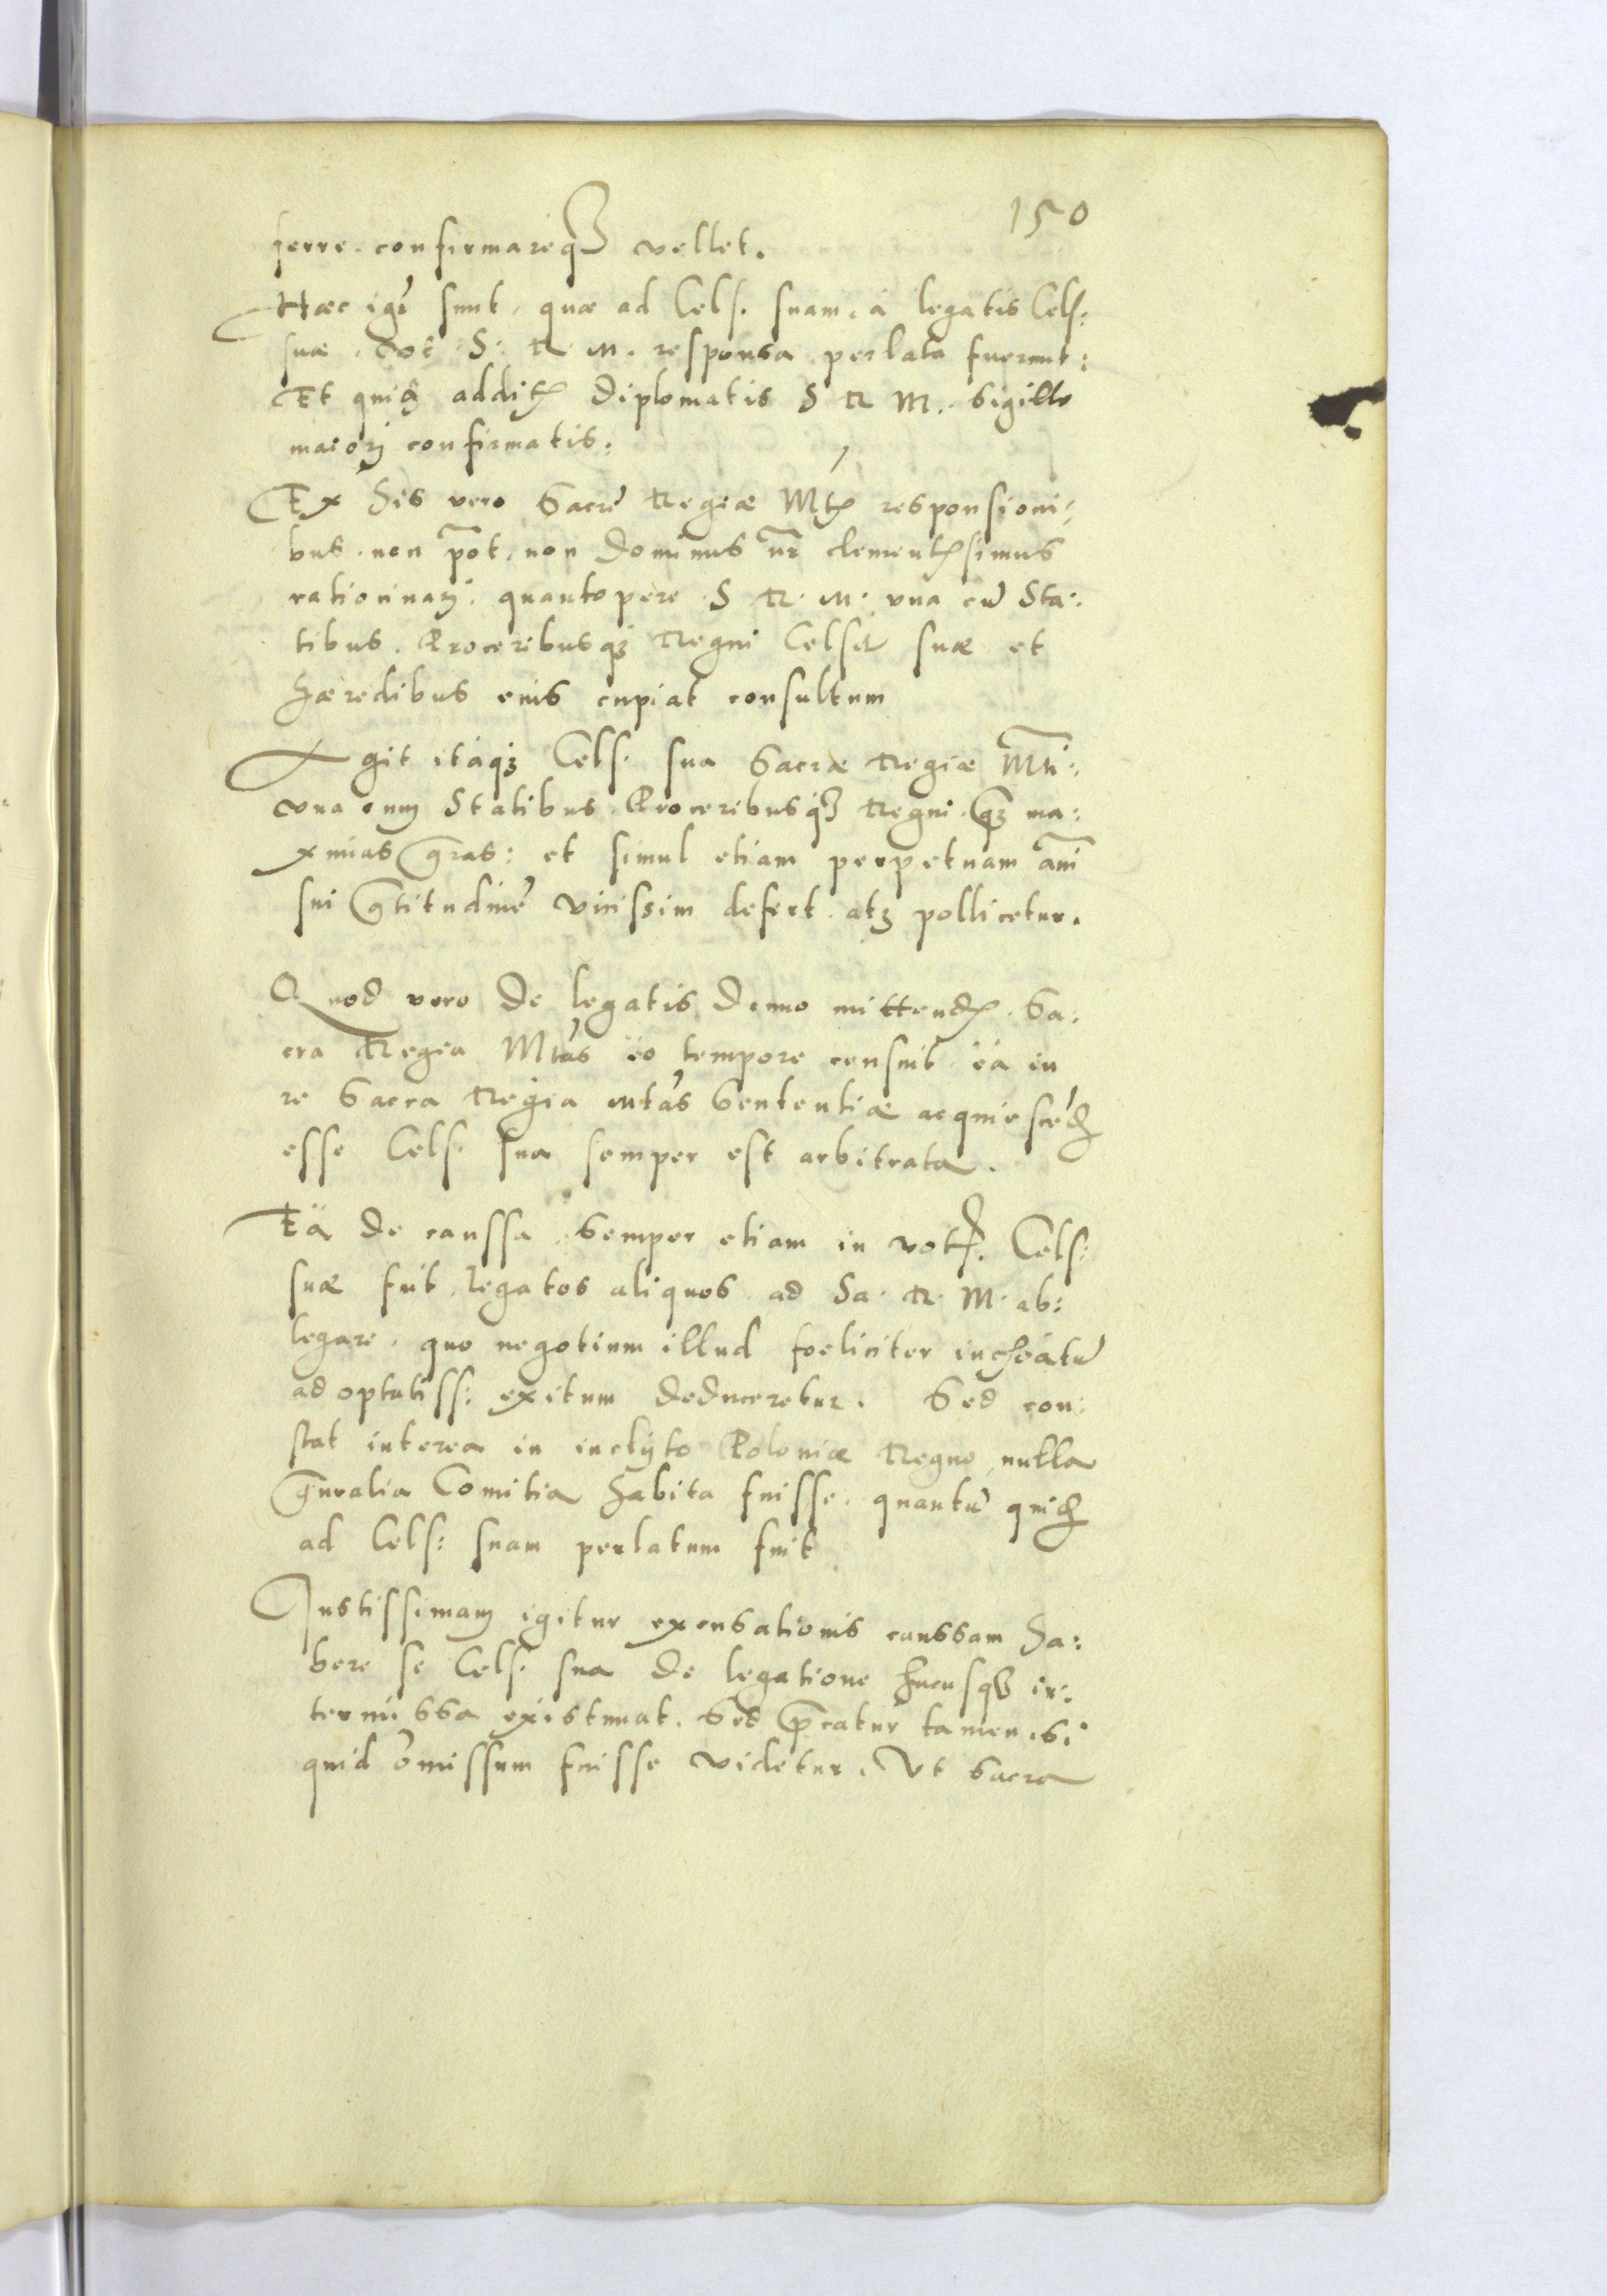 150
ferre. confirmareq₃ vellet.
Hæc igr̃ sunt, quæ ad Cels. suam, à legatis Cels:
suæ, S. R. M. responsa perlata fuerunt:
Et quidẽ additis diplomatis S R M. sigillo
maiorj confirmatis.
Ex his vero Sacrę Regiæ Mtis responsioni=
bus. non põt. non Dominus nr̃ clementissimus
ratiocinarj. quantopere S R. M. vna cũ Sta:
tibus. Proceribusq₃ Regni Celsit. suæ et
hæredibus eius cupiat consultum
Agit itaq₃ Cels. sua Sacræ Regiæ Mti:
vna cum Statibus. Proceribusq₃ Regni. q̃₃ ma:
ximas gr̃as: et simul etiam perpetuam aĩ
sui gr̃titudinẽ vicissim defert. atq₃ pollicetur.
Quod vero de legatis denuo mittendis. Sa:
cra Regia Mtas eo tempore censuit. ea in
re Sacra Regia Mtas sententiæ acquiescẽd
esse Cels. sua semper est arbitrata.
Ea de caussa. semper etiam in votis. Cels:
suæ fuit. legatos aliquos ad Sa. R. M. ab:
legare. quo negotium illud foeliciter incheatũ
ad optatiss: exitum deduceretur. Sed con:
stat interea in inclyto Poloniæ Regno nulla
gñralia Comitia habita fuisse. quantũ quid
ad Cels: suam perlatum fuit
Justissimam igitur excusationis caussam ha:
bere se Cels. sua de legatione hucusq₃ in:
termissa existimat. Sed p̃catur tamen. si
quid omissum fuisse videtur. Vt Sacra